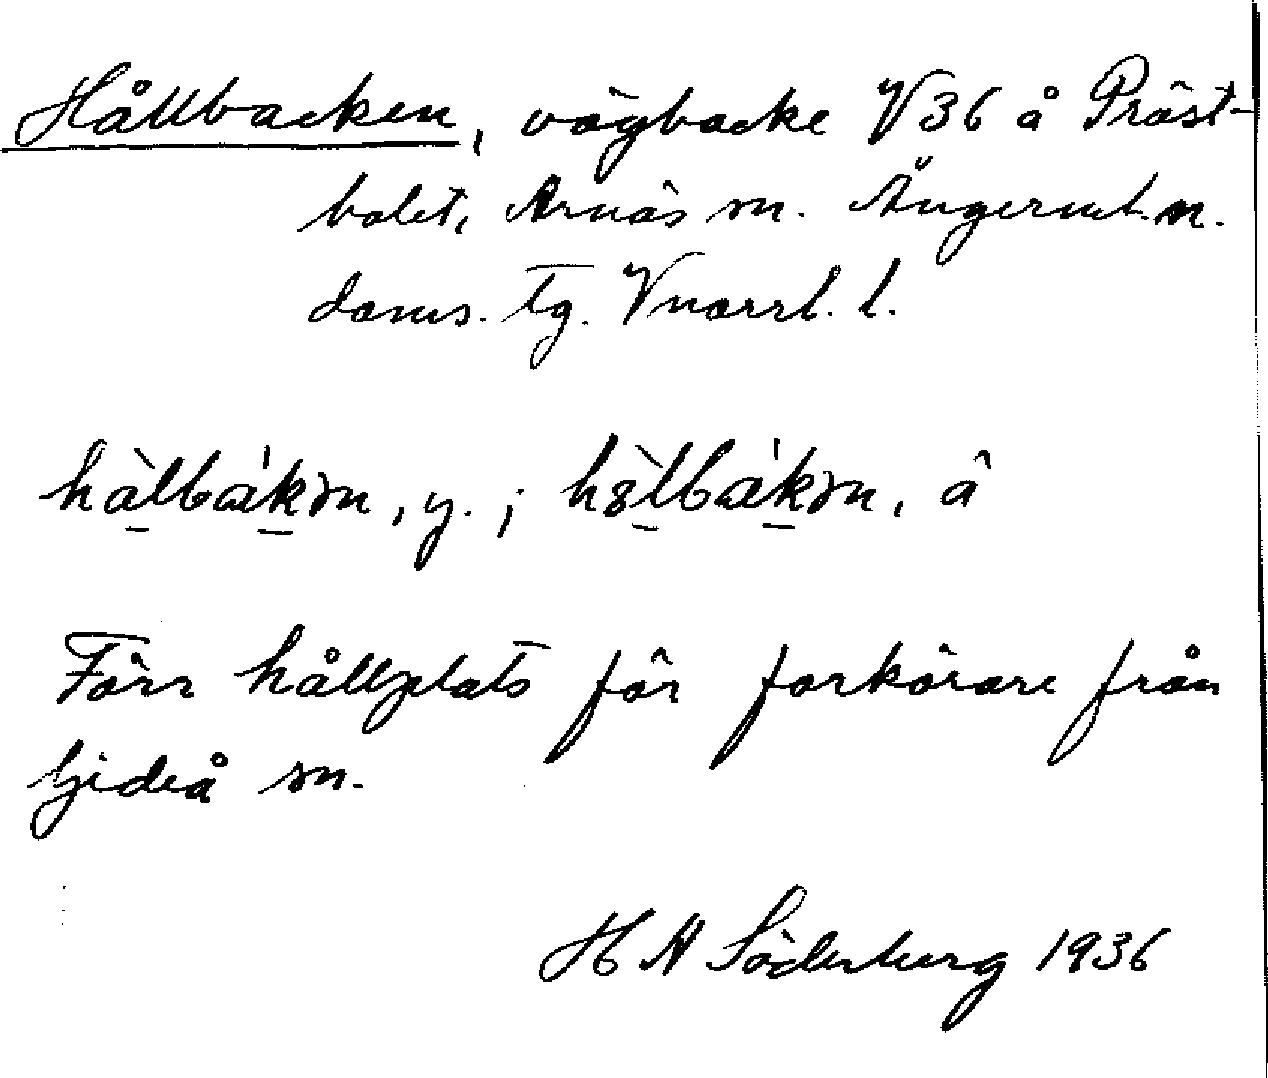 Hållbacken, vägbacke V36 å Präst-
bolet, Arnäs sn. Ångerml. n.
doms. tg. Vnorrl. l.
hàlbákən, y.; hòlbákən, ä
Förr hållplats för forkörare från
Gideå sn.
H A Söderberg 1936